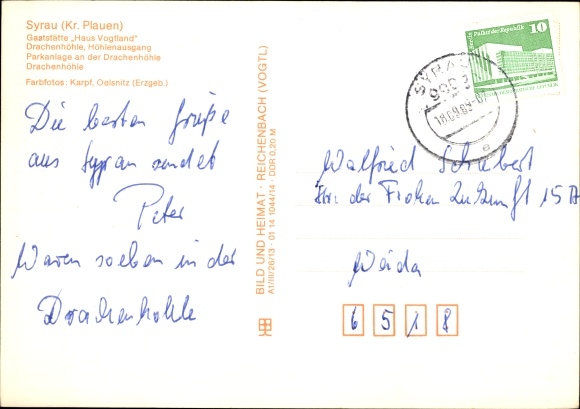 Syrau (Kr. Plauen)
Gaststätte „Haus Vogtland"
Drachenhöhle, Höhlenausgang
Parkanlage an der Drachenhöhle
Drachenhöhle
Farbfotos: Karpf, Oelsnitz (Erzgeb.)
Die besten Grüße
aus Syrau sendet
Peter
Waren soeben in der
Drachenhöhle
BILD UND HEIMAT · REICHENBACH (VOGTL)
A1/III/26/13 · 01 14 1044/14 · DDR 0,20 M
10
Palast der Republik
SYRAU
Walfried Schubert
Str. der Frohen Zukunft 15A
Weida
6518